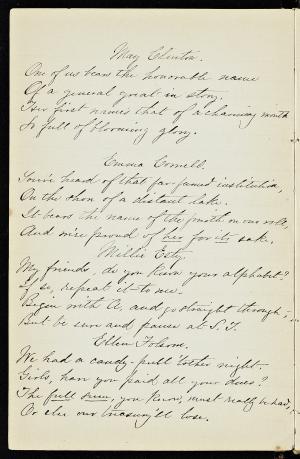 May Clinton.
One of us bears the honorable name
Of a general great in story.
Her first name's that of a charming month
So full of blooming glory.
Emma Cornell.
You've heard of that far-famed institution,
On the shore of a distant lake.
It bears the name of the fourth on our roll,
And we're proud of her for its sake.
Millie Esty.
My friends, do you know your alphabet?
If so, repeat it to me—
Begin with A, and go straight through—
But be sure and pause at S.T.
Ellen Folsom.
We had a candy-pull t'other night.
Girls, have you paid all your dues?
The full sum, you know, must really be had,
Or else our treasury'll lose.